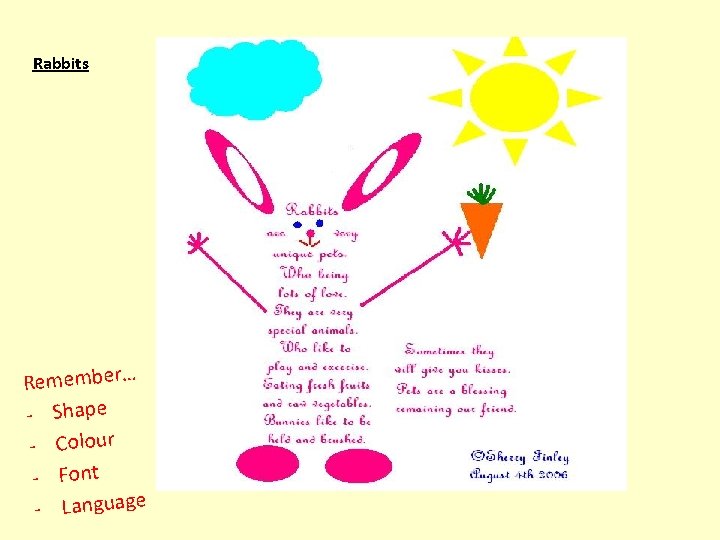 Rabbits
Rabbits
are very
unique pets.
Who bring
lots of love.
They are very
special animals.
Who like to
play and exercise.
Eating fresh fruits
and raw vegetables.
Bunnies like to be
held and brushed.
Sometimes they
will give you kisses.
Pets are a blessing
remaining our friend.
©Sherry Finley
August 4th 2006
Remember...
- Shape
- Colour
- Font
- Language